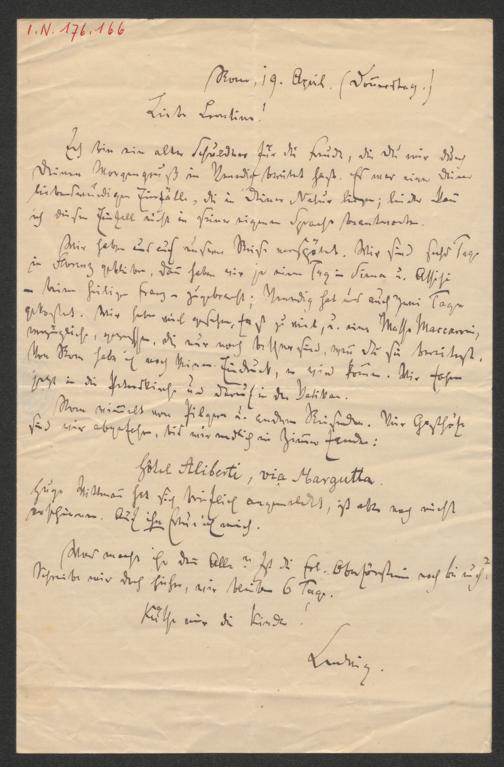 I.N. 176.166
Rom, 19. April. (Donnerstag.)
Liebe Leontine!
Ich bin ein alter Schuldner für die Freude, die Du mir durch
Deinen Morgengruß in Venedig bereitet hast. Es war eine Deiner
liebenswürdigen Einfälle, die in Deiner Natur liegen; leider kann
ich diesen Einfall nicht in seiner eigenen Sprache beantworten.
Wir haben uns auf unserer Reise verspätet. Wir sind sechs Tage
in Florenz geblieben, dann haben wir je einen Tag in Siena u. Assisi
– beim heiligen Franz – zugebracht; Venedig hat uns auch zwei Tage
gekostet. Wir haben viel gesehen, fast zu viel, u. eine Masse Maccaroni,
vorzügliche, gegessen, die nur noch besser sind, wenn Du sie bereitest.
Von Rom habe ich noch keinen Eindruck, er wird kommen. Wir fahren
jetzt in die Peterskirche und darauf in den Vatikan.
Rom wimmelt von Pilgern u. anderen Reisenden. Vier Gasthöfe
sind wir abgefahren, bis wir endlich ein Zimmer fanden:
Hôtel Aliberti, via Margutta.
Hugo Wittmann hat sich brieflich angemeldet, ist aber noch nicht
erschienen. Auf ihn freue ich mich.
Was macht ihr denn Alle? Ist die Frl. Oberförsterin noch bei euch?
Schreibe mir doch hieher, wir bleiben 6 Tage.
Küsse mir die Kinder!
Ludwig.